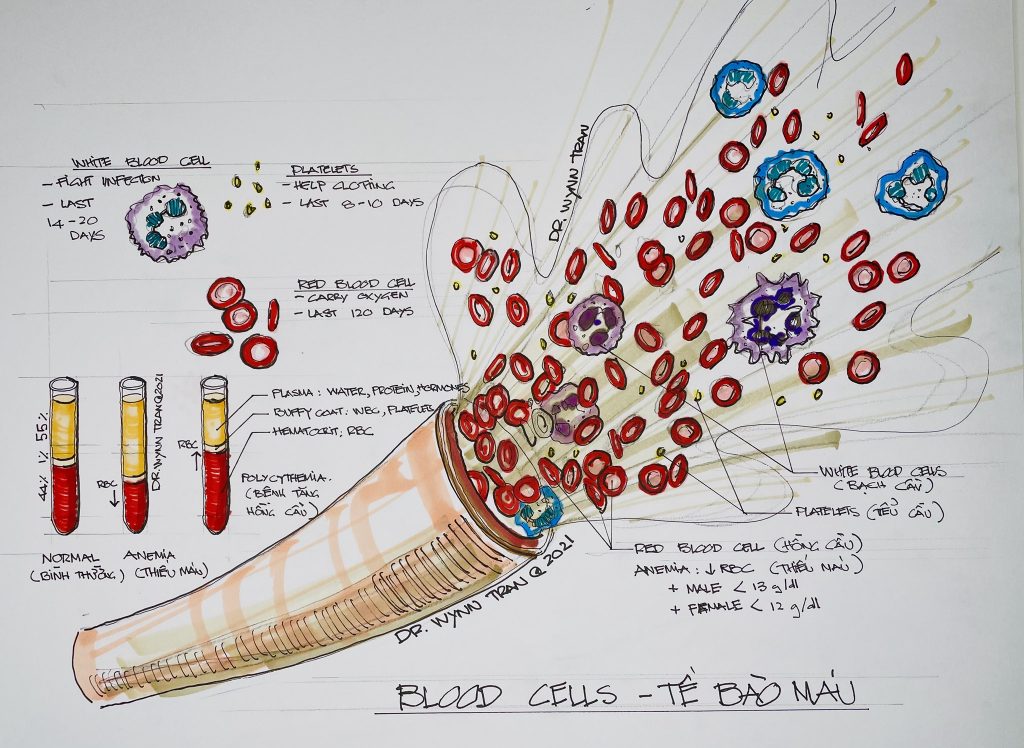 WHITE BLOOD CELL
- FIGHT INFECTION
- LAST
14-20
DAYS
PLATELETS
- HELP CLOTTING
- LAST 8-10 DAYS
DR. WYNN TRAN
RED BLOOD CELL
- CARRY OXYGEN
- LAST 120 DAYS
55%
1%
44%
RBC
DR. WYNN TRAN@2021
RBC
PLASMA: WATER, PROTEIN, HORMONES
BUFFY COAT: WBC, PLATELETS
HEMATOCRIT: RBC
POLYCYTHEMIA.
(BỆNH TĂNG
HỒNG CẦU)
NORMAL
(BÌNH THƯỜNG)
ANEMIA
(THIẾU MÁU)
WHITE BLOOD CELLS
(BẠCH CẦU)
PLATELETS (TIỂU CẦU)
RED BLOOD CELL (HỒNG CẦU)
ANEMIA: ↓ RBC (THIẾU MÁU)
+ MALE < 13 g/dl
+ FEMALE < 12 g/dl
DR. WYNN TRAN @ 2021
BLOOD CELLS - TẾ BÀO MÁU